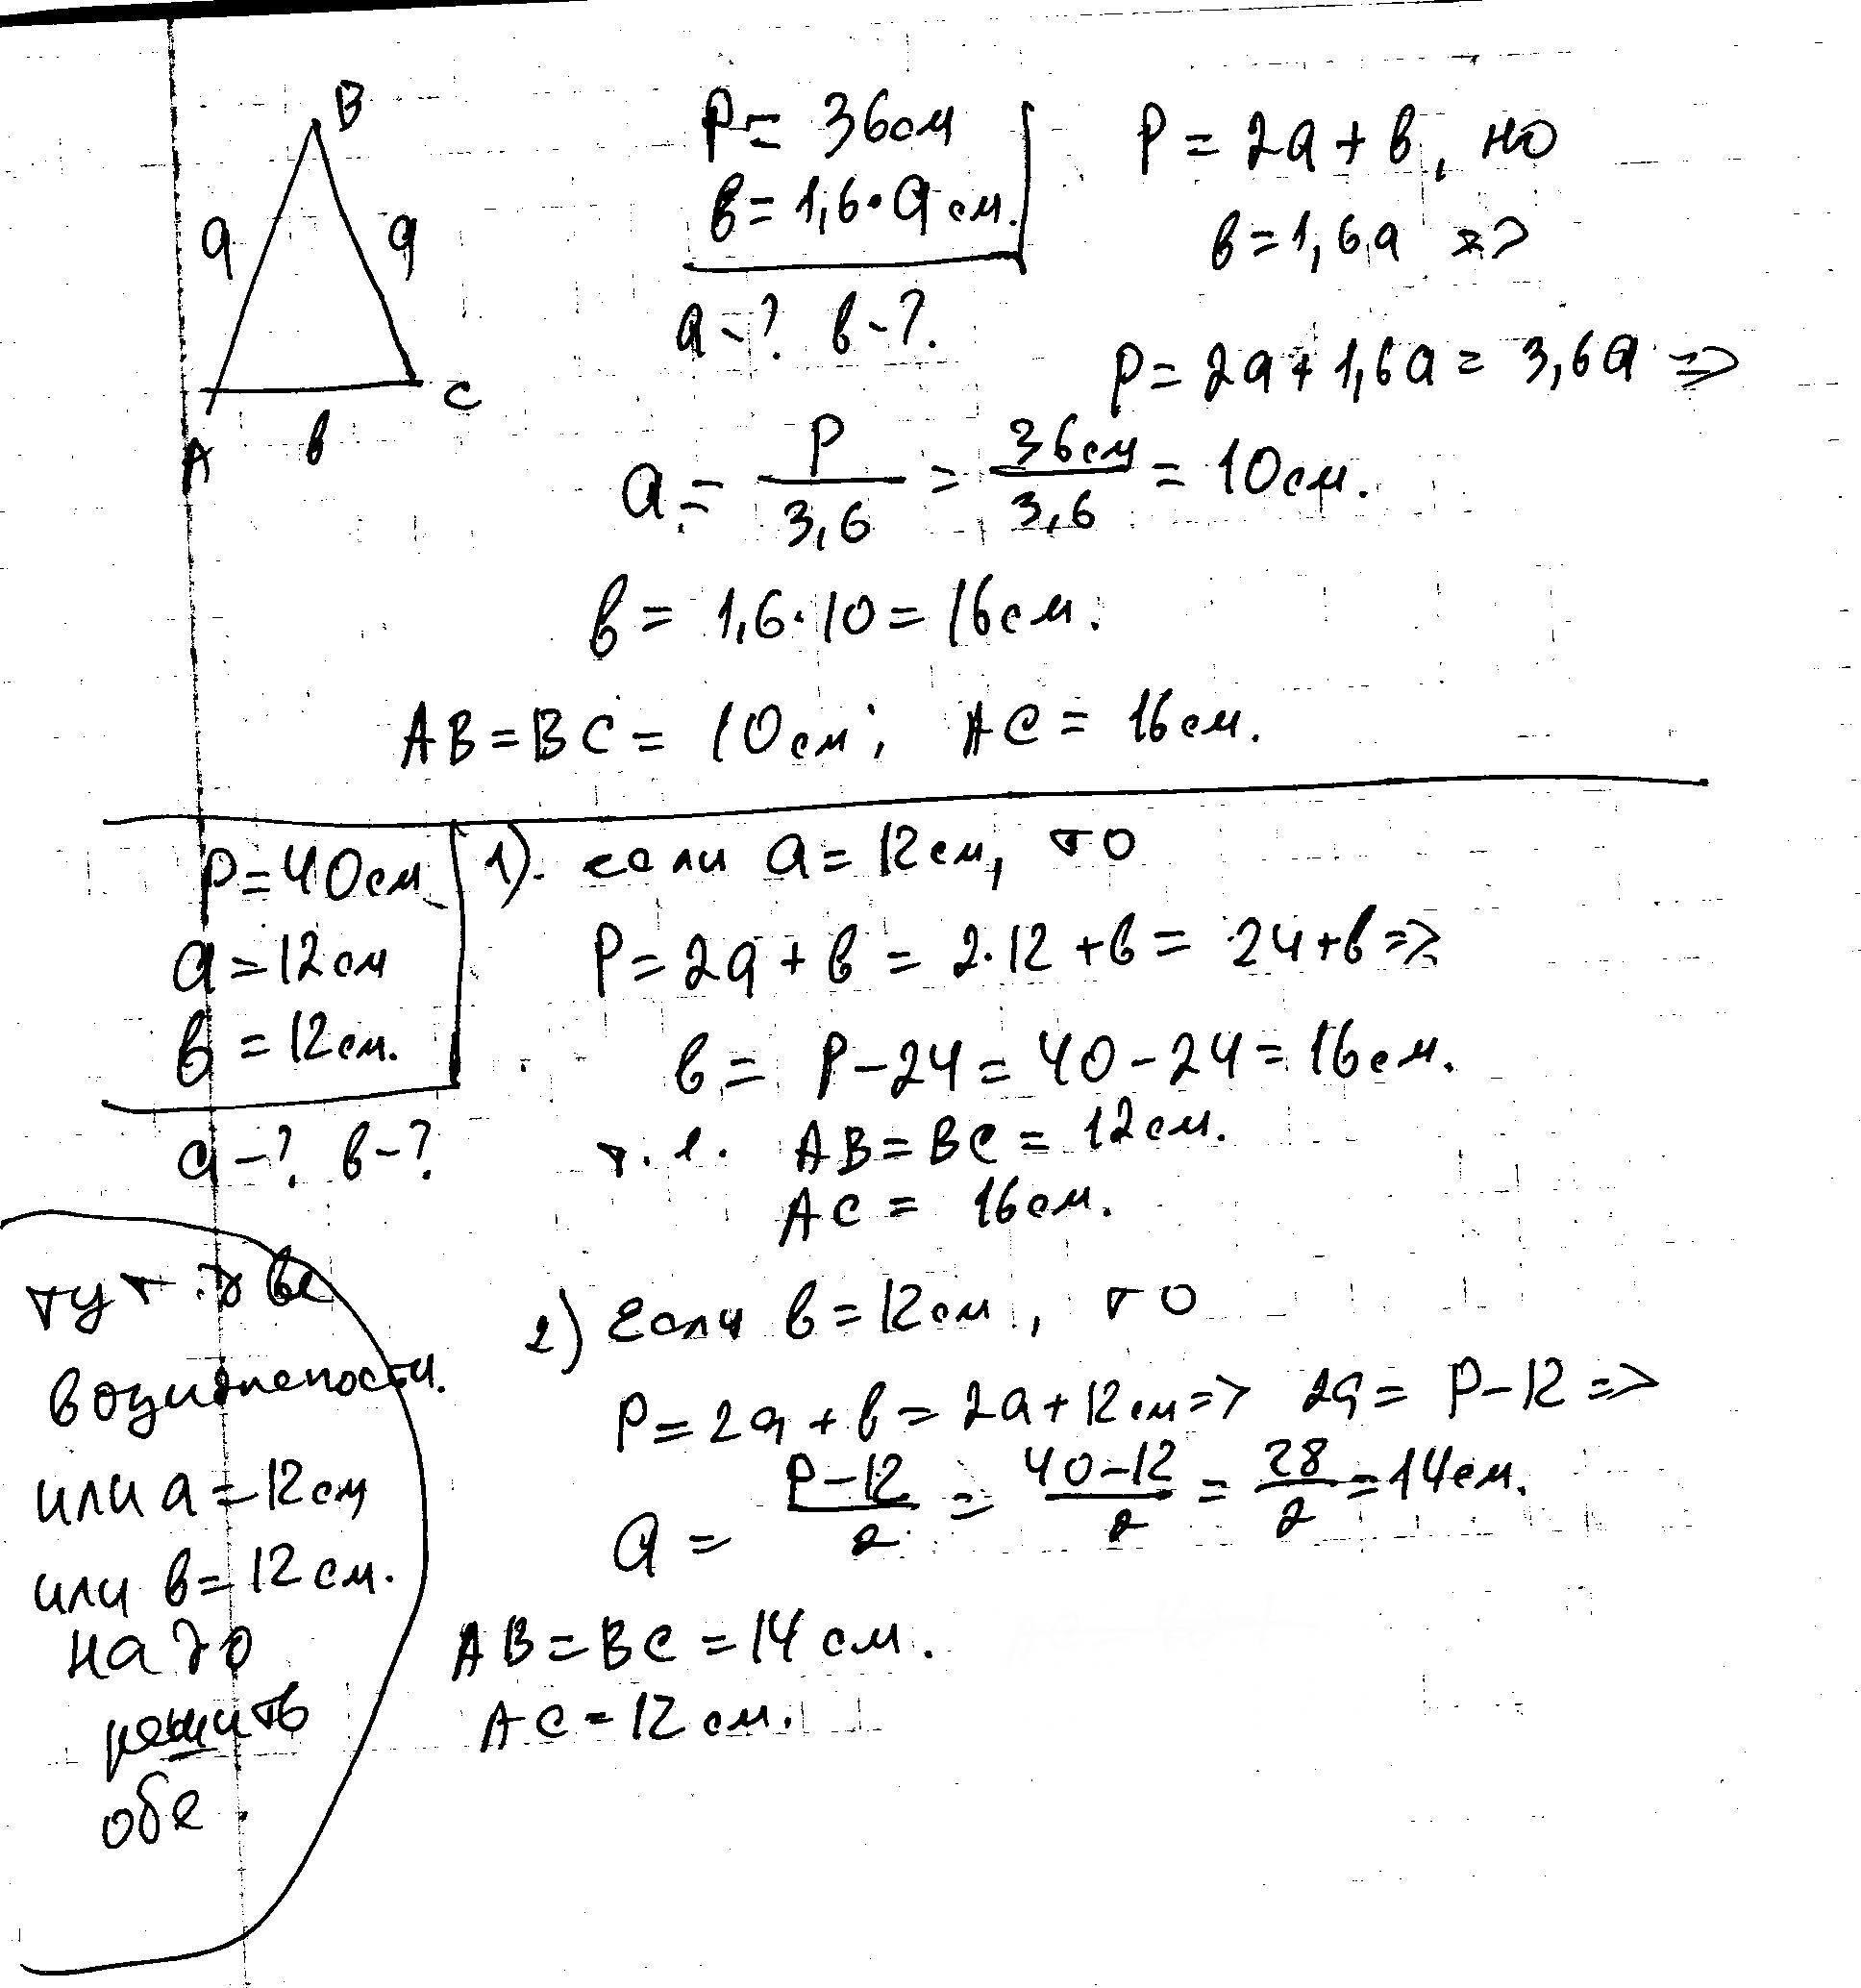 B
a a
A в C
P = 36см
в = 1,6·a см.
a-? в-?
P = 2a + в, но
в = 1,6a =>
P = 2a + 1,6a = 3,6a =>
a = P/3,6 = 36см/3,6 = 10см.
в = 1,6·10 = 16см.
AB = BC = 10см; AC = 16см.
P = 40см
a = 12см
в = 12см.
a-? в-?
1). если a = 12см, то
P = 2a + в = 2·12 + в = 24 + в =>
в = P - 24 = 40 - 24 = 16см.
т.е. AB = BC = 12см.
AC = 16см.
тут две
возможности.
или a = 12см
или в = 12см.
надо
решить
обе.
2) Если в = 12см, то
P = 2a + в = 2a + 12см => 2a = P - 12 =>
a = P-12/2 = 40-12/2 = 28/2 = 14см.
AB = BC = 14 см.
AC = 12 см.